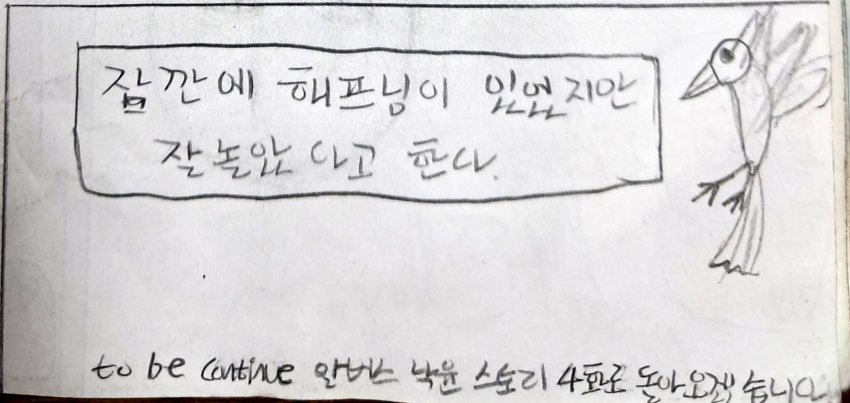 잠깐에 해프닝이 있었지만
잘 놀았다고 한다.
to be continue 알버스 낙윤 스토리 4화로 돌아오겠습니다